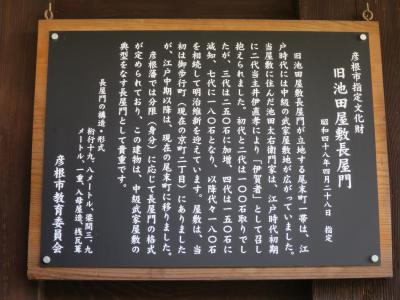 彦根市指定文化財
旧池田屋敷長屋門
昭和四十八年四月二十八日 指定
旧池田屋敷長屋門が立地する尾末町一帯は、江
戸時代には中級の武家屋敷地が広がっていました。
当屋敷に住んだ池田太右衛門家は、江戸時代初期
に二代当主井伊直孝により「伊賀者」として召し
抱えられました。初代と二代は一〇〇石取りでし
たが、三代は二五〇石に加増、四代は一五〇石に
減知、七代に一八〇石となり、以降代々一八〇石
を相続して明治維新を迎えています。屋敷は、当
初は御歩行町（現在の京町二丁目）にありました
が、江戸中期以降は、現在の尾末町に移りました。
彦根藩では分限（身分）に応じて長屋門の格式
が定められており、この建物は、中級武家屋敷の
典型をなす長屋門として貴重です。
長屋門の構造・形式
桁行十九、八メートル、梁間三、九
メートル、一重、入母屋造、桟瓦葺
彦根市教育委員会